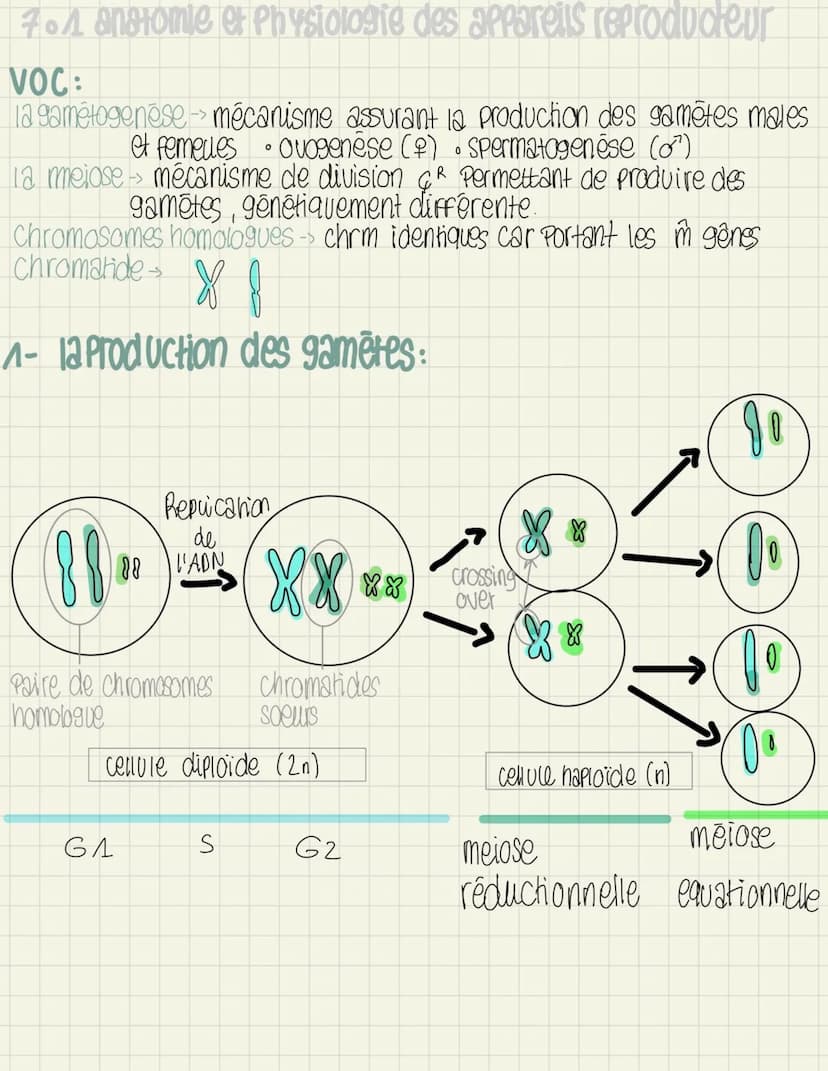 7.1 anatomie et Physiologie des appareils reproducteur
VOC:
la gamétogenèse -> mécanisme assurant la production des gamètes males
et femelles • ovogenèse (♀) • spermatogenèse (♂)
la meiose -> mécanisme de division çR permettant de produire des
gamètes, génétiquement différente.
Chromosomes homologues -> chrm identiques car portant les m̂ gènes
Chromatide ->
1- la production des gamètes:
Replication
de
l'ADN
crossing
over
Paire de chromosomes
homologue
Chromatides
soeurs
cellule diploïde (2n)
cellule haploïde (n)
G1 S G2
meiose
réductionnelle
méiose
equationnelle